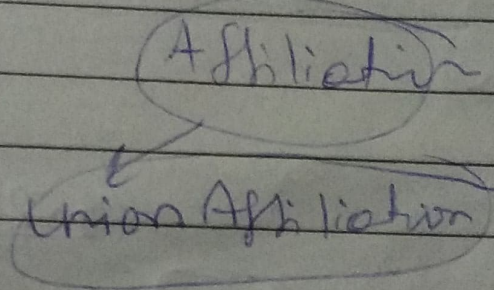 Affiliation
Union Affiliation